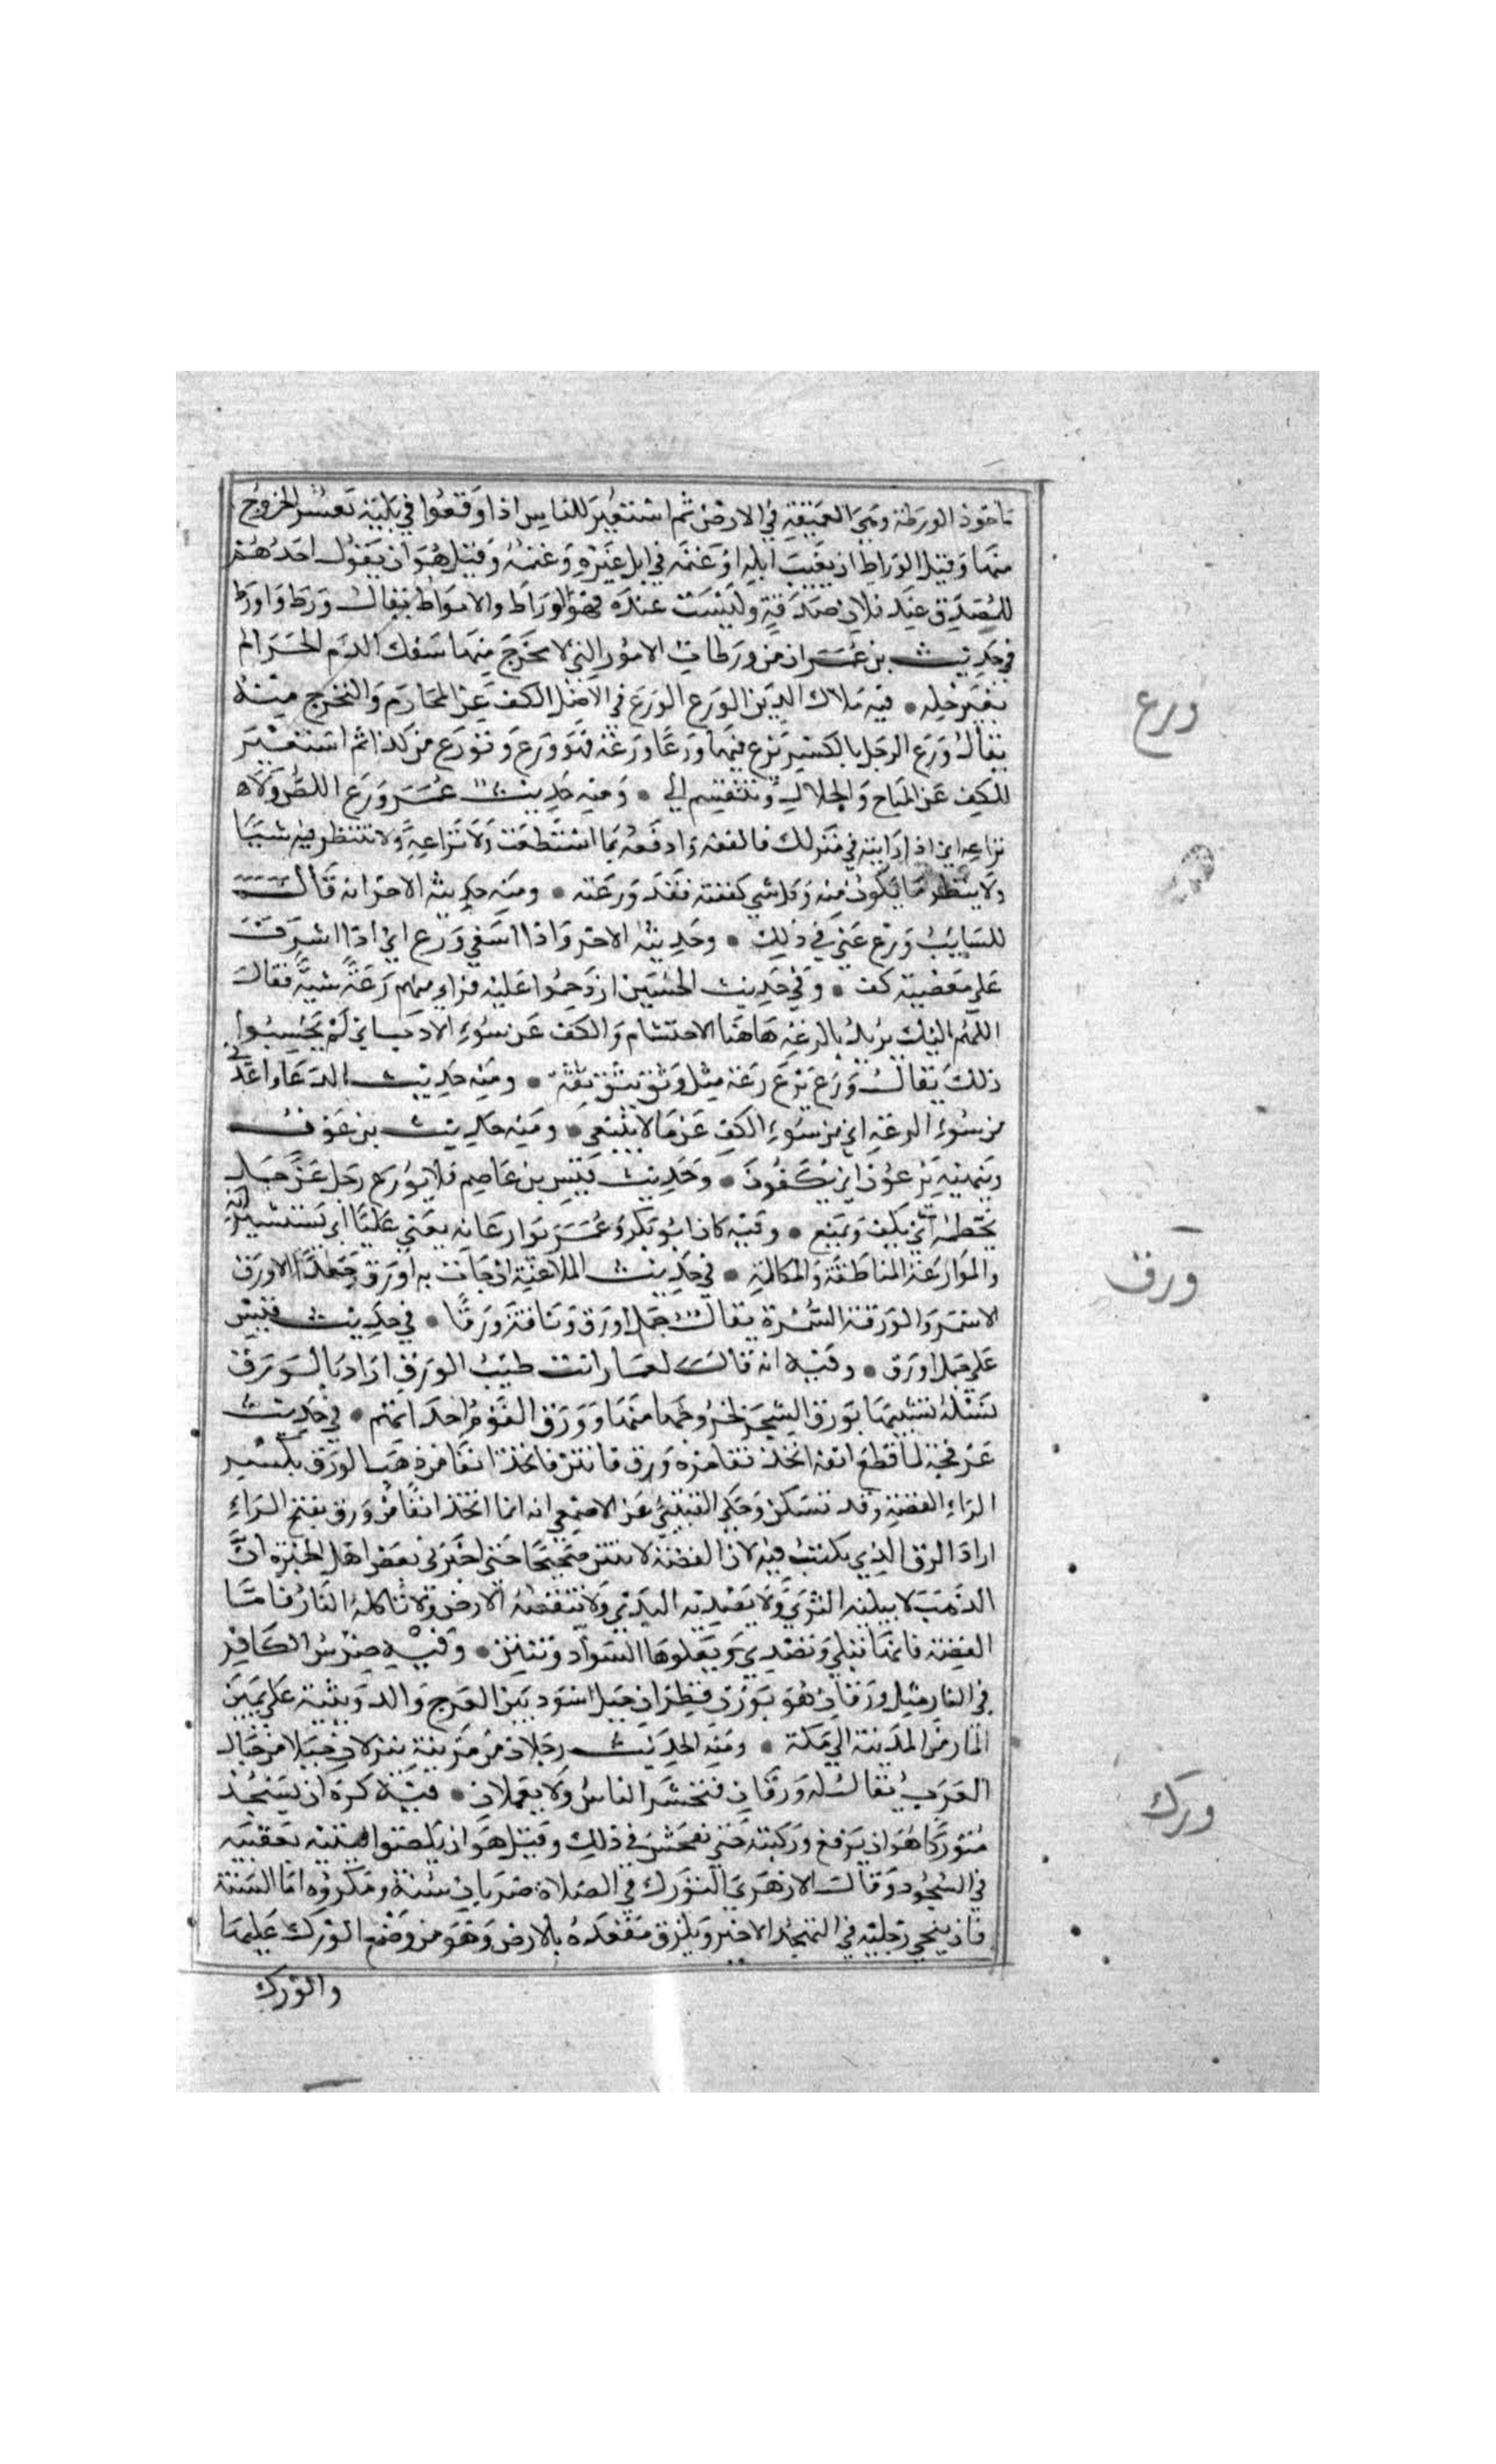 ماخوذ الورطة وهي العميقة في الارض ثم استعير للناس اذا وقعوا في بلية تعسر الخروج
منها وقيل الوراط ان يغيب ابله او غنمه في ابل غيره وغنمه وقيل هو ان يقول احدهم
للمصدق عند فلان صدقة وليست عنده فهو الوراط والامواط يقال ورط واورط
في حديث بن عمر ان من ورطات الامور التي لا مخرج منها سفك الدم الحرام
بغير حله • فيه ملاك الدين الورع الورع في الاصل الكف عن المحارم والتحرج منه
يقال ورع الرجل بالكسر يرع فيهما ورعا ورعة فهو ورع وتورع من كذا ثم استعير
للكف عن المباح والحلال وتنقسم الي • ومنه حديث عمر ورع اللص ولا
تراعه اي اذا رايته في منزلك فالفعه وادفعه بما استطعت ولا تراعه ولا تنتظر فيه شيئا
ولا ينتظر ما يكون منه وكل شي كففته فقد ورعته • ومنه حديثه الاخر انه قال
للسايب ورع عني في ذلك • وحديثه الاخر واذا اشفي ورع اي اذا اشرف
علي معصية كف • وفي حديث الحسين ازدحموا عليه فراي منهم رعة سية فقال
اللهم اليك يريد بالرعة هاهنا الاحتشام والكف عن سوء الادب اي لم يحسبوا
ذلك يقال ورع يرع رعة مثل وثق يثق ثقة • ومنه حديث الدعا واعذني
من سوء الرعة اي من سوء الكف عن ما لا ينبغي • ومنه حديث بن عوف
وبنهيه يرعون اي يكفون • وحديث قيس بن عاصم فلا يورع رجل عن جمل
يخطمه اي يكف ويمنع • وفيه كان ابو بكر وعمر يوارعانه يعني عليا اي يستشيرانه
والموارعة المناطقة والمكالمة • في حديث الملاعنة ان جات به اورق جعدا الاورق
الاسمر والورقة السمرة يقال جمل اورق وناقة ورقا • في حديث قيس
علي جمل اورق • وفيه انه قال لعمار انت طيب الورق اراد بالورق
نسله تشبيها بورق الشجر لخروجها منها وورق القوم احداثهم • في حديث
عرفجة لما قطع انفه اتخذ انفا من ورق فانتن فاتخذ انفا من ذهب الورق بكسر
الراء الفضة وقد تسكن وحكي القتيبي عن الاصمعي انه انما اتخذ انفا من ورق بفتح الراء
اراد الرق الذي يكتب فيه لان الفضة لا تنتن صحيحا حتي اخبرني بعض اهل الخبرة ان
الذهب لا يبليه الثري ولا يصديه الندي ولا تنقصه الارض ولا تاكله النار فاما
الفضة فانها تبلي وتصدي ويعلوها السواد وتنتن • وفيه ضرس الكافر
في النار مثل ورقان هو بوزن قطران جبل اسود بين العرج والرويثة علي يمين
المار من المدينة الي مكة • ومنه الحديث رجلان من مزينة ينزلان جبلا من جبال
العرب يقال له ورقان فتحشر الناس ولا يعلمان • فيه كره ان يسجد
متوركا هو ان يرفع وركيه حتي يفحش في ذلك وقيل هو ان يلصق اليتيه بعقبيه
في السجود وقال الازهري التورك في الصلاة ضربان سنة ومكروه اما السنة
فان ينحي رجليه في التشهد الاخير ويلزق مقعده بالارض وهو من وضع الورك عليها
والورك
ورع
ورق
ورك